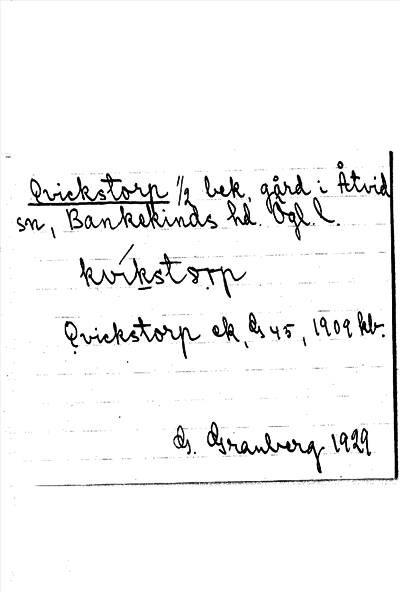 Qvickstorp 1/2 bek. gård i Åtvid
sn, Bankekinds hd. Ögl. l.
kvíkstorp
Qvickstorp ek, G 45, 1909 kb.
G. Granberg 1929